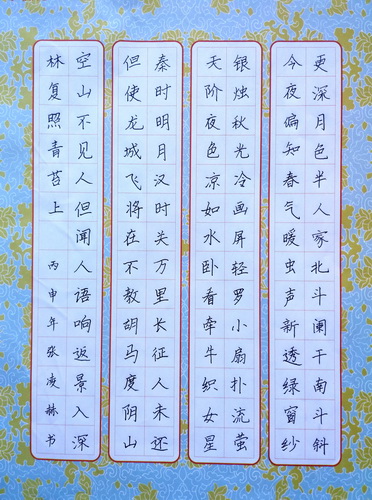 更深月色半人家北斗阑干南斗斜
今夜偏知春气暖虫声新透绿窗纱
银烛秋光冷画屏轻罗小扇扑流萤
天阶夜色凉如水卧看牵牛织女星
秦时明月汉时关万里长征人未还
但使龙城飞将在不教胡马度阴山
空山不见人但闻人语响返景入深
林复照青苔上
丙申年张凌赫书